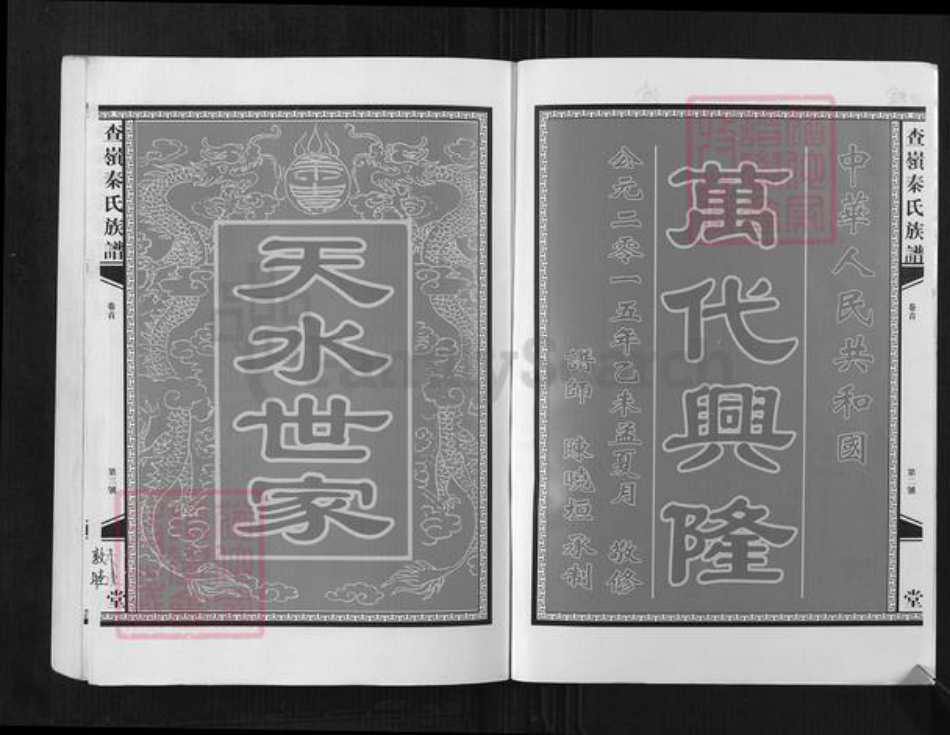 查嶺秦氏族譜
卷首
第二號
堂
中華人民共和國
萬代興隆
公元二零一五年乙未孟夏月 敬修
譜師 陳曉垣 承制
天水世家
查嶺秦氏族譜
卷首
第二號
堂
敦睦
FamilySearch